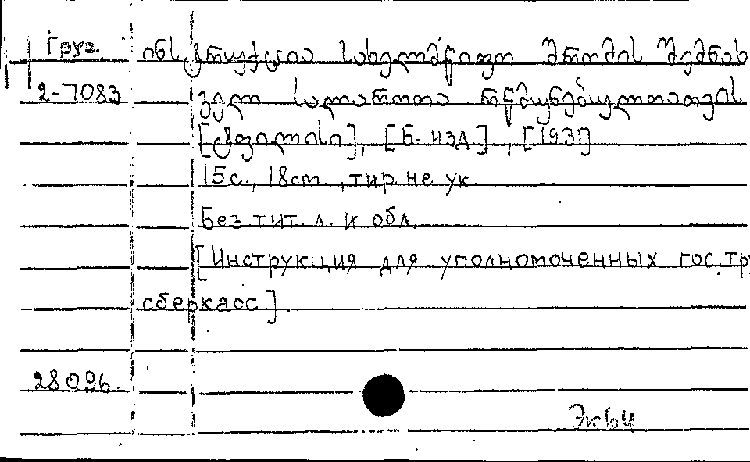 Груз.
ინსტრუქცია სახელმწიფო შრომის შემნახ
2-7083
ველი სალაროთა რწმუნებულთათვის
[ტფილისი], [Б. изд], [193]
15с., 18cm, тир. не ук.
Без тит. л. и обл.
[Инструкция для уполномоченных гос. тру
сберкасс].
28096.